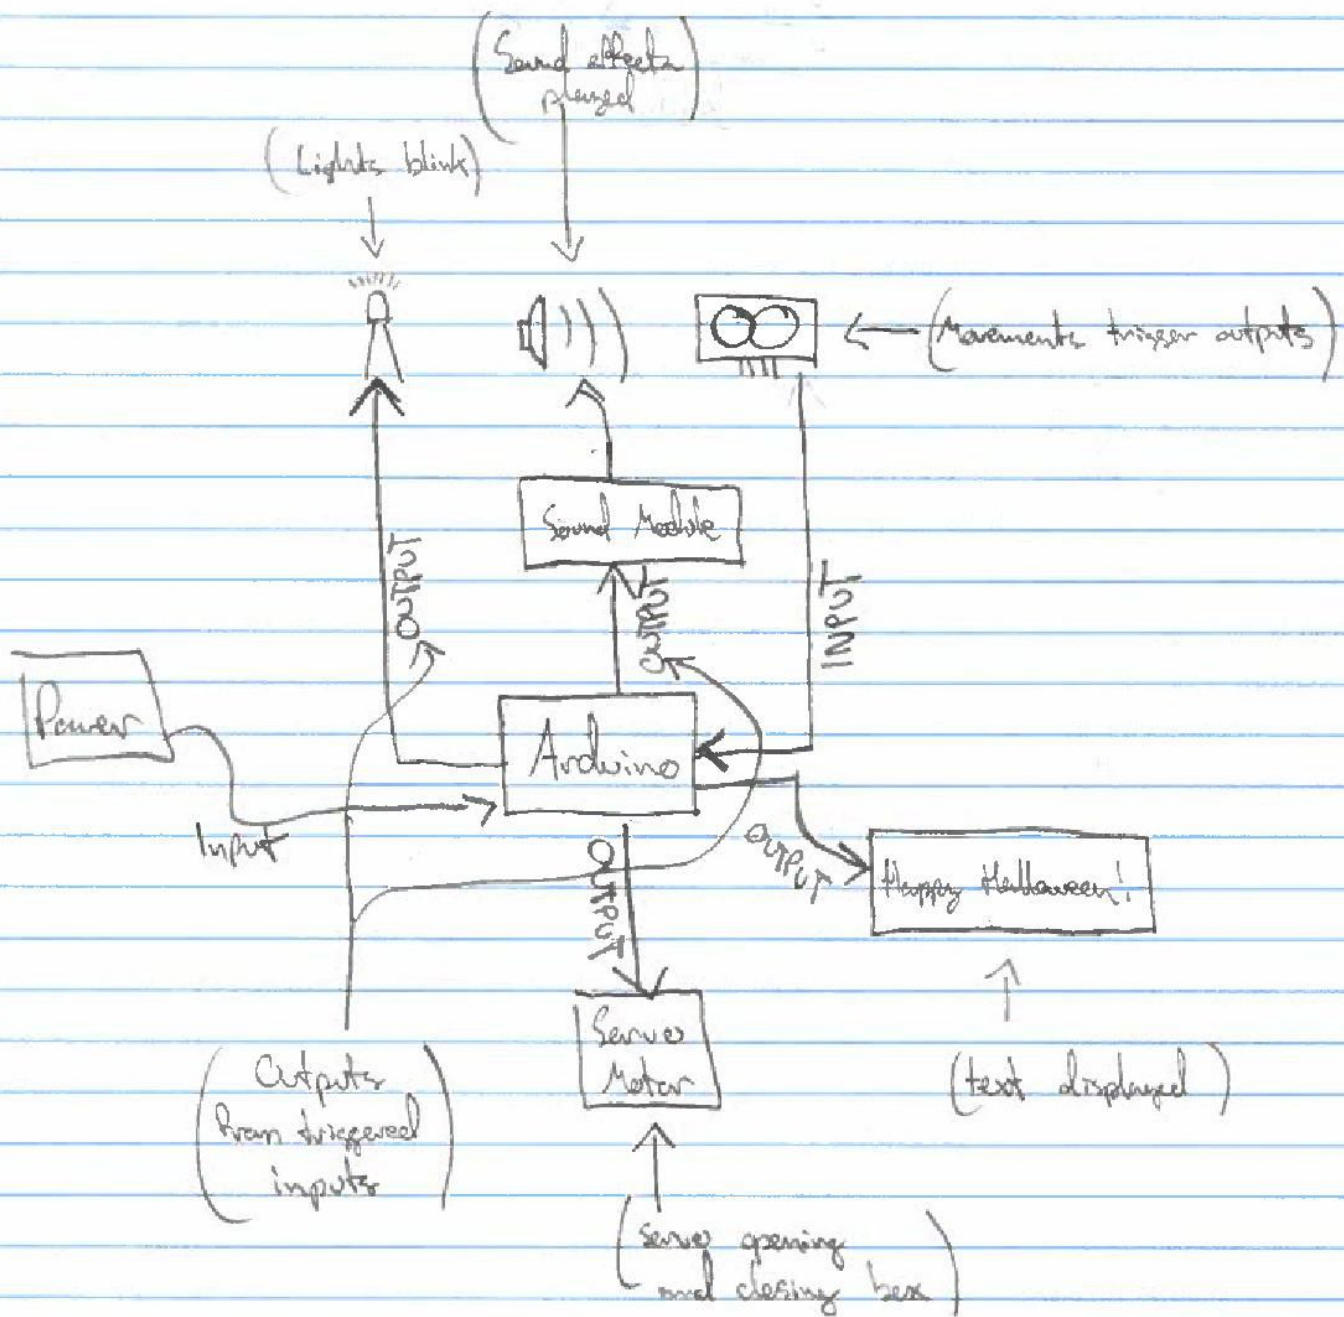 (Sound effects
played)
(Lights blink)
(Movements trigger outputs)
Sound Module
OUTPUT
OUTPUT
INPUT
Power
Arduino
Input
OUTPUT
OUTPUT
Happy Halloween!
Servo
Motor
(Outputs
from triggered
inputs)
(text displayed)
(servo opening
and closing box)